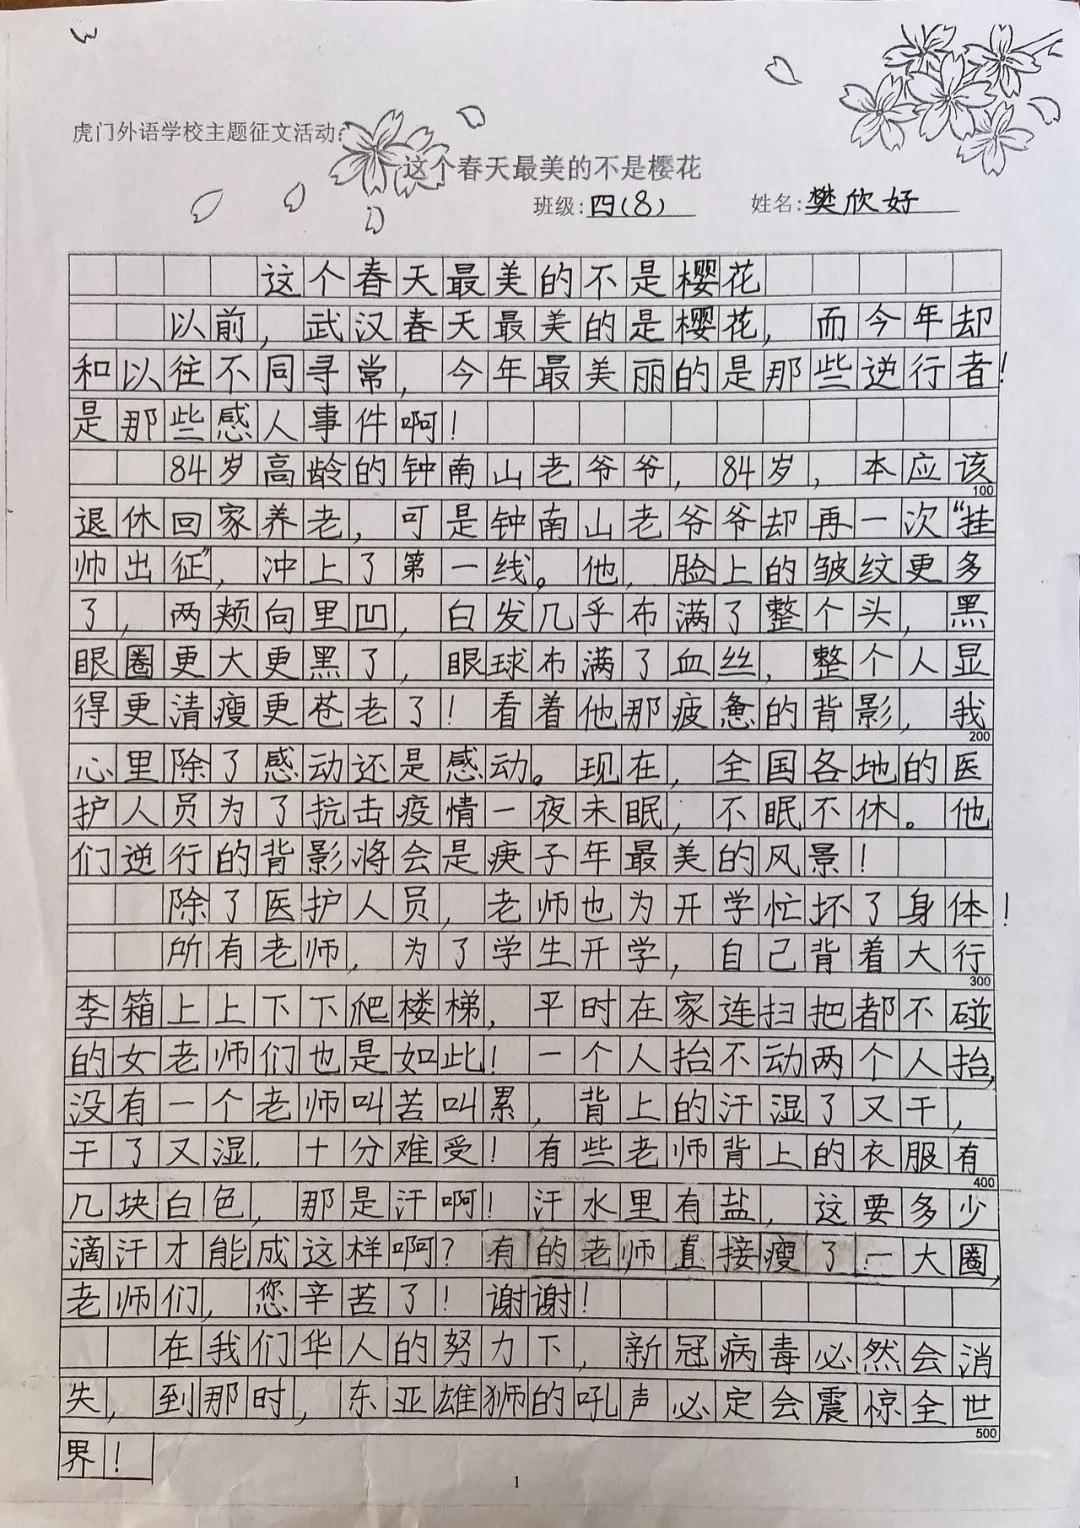 虎门外语学校主题征文活动:
这个春天最美的不是樱花
班级:四(8) 姓名:樊欣好
这个春天最美的不是樱花
以前，武汉春天最美的是樱花，而今年却
和以往不同寻常，今年最美丽的是那些逆行者!
是那些感人事件啊!
84岁高龄的钟南山老爷爷，84岁，本应该
100
退休回家养老，可是钟南山老爷爷却再一次“挂
帅出征”，冲上了第一线。他，脸上的皱纹更多
了，两颊向里凹，白发几乎布满了整个头，黑
眼圈更大更黑了，眼球布满了血丝，整个人显
得更清瘦更苍老了!看着他那疲惫的背影，我
200
心里除了感动还是感动。现在，全国各地的医
护人员为了抗击疫情一夜未眠，不眠不休。他
们逆行的背影将会是庚子年最美的风景!
除了医护人员，老师也为开学忙坏了身体!
所有老师，为了学生开学，自己背着大行
300
李箱上上下下爬楼梯，平时在家连扫把都不碰
的女老师们也是如此!一个人抬不动两个人抬,
没有一个老师叫苦叫累，背上的汗湿了又干，
干了又湿，十分难受!有些老师背上的衣服有
400
几块白色，那是汗啊!汗水里有盐，这要多少
滴汗才能成这样啊?有的老师直接瘦了一大圈,
老师们，您辛苦了!谢谢!
在我们华人的努力下，新冠病毒必然会消
失，到那时，东亚雄狮的吼声必定会震惊全世
500
界!
1